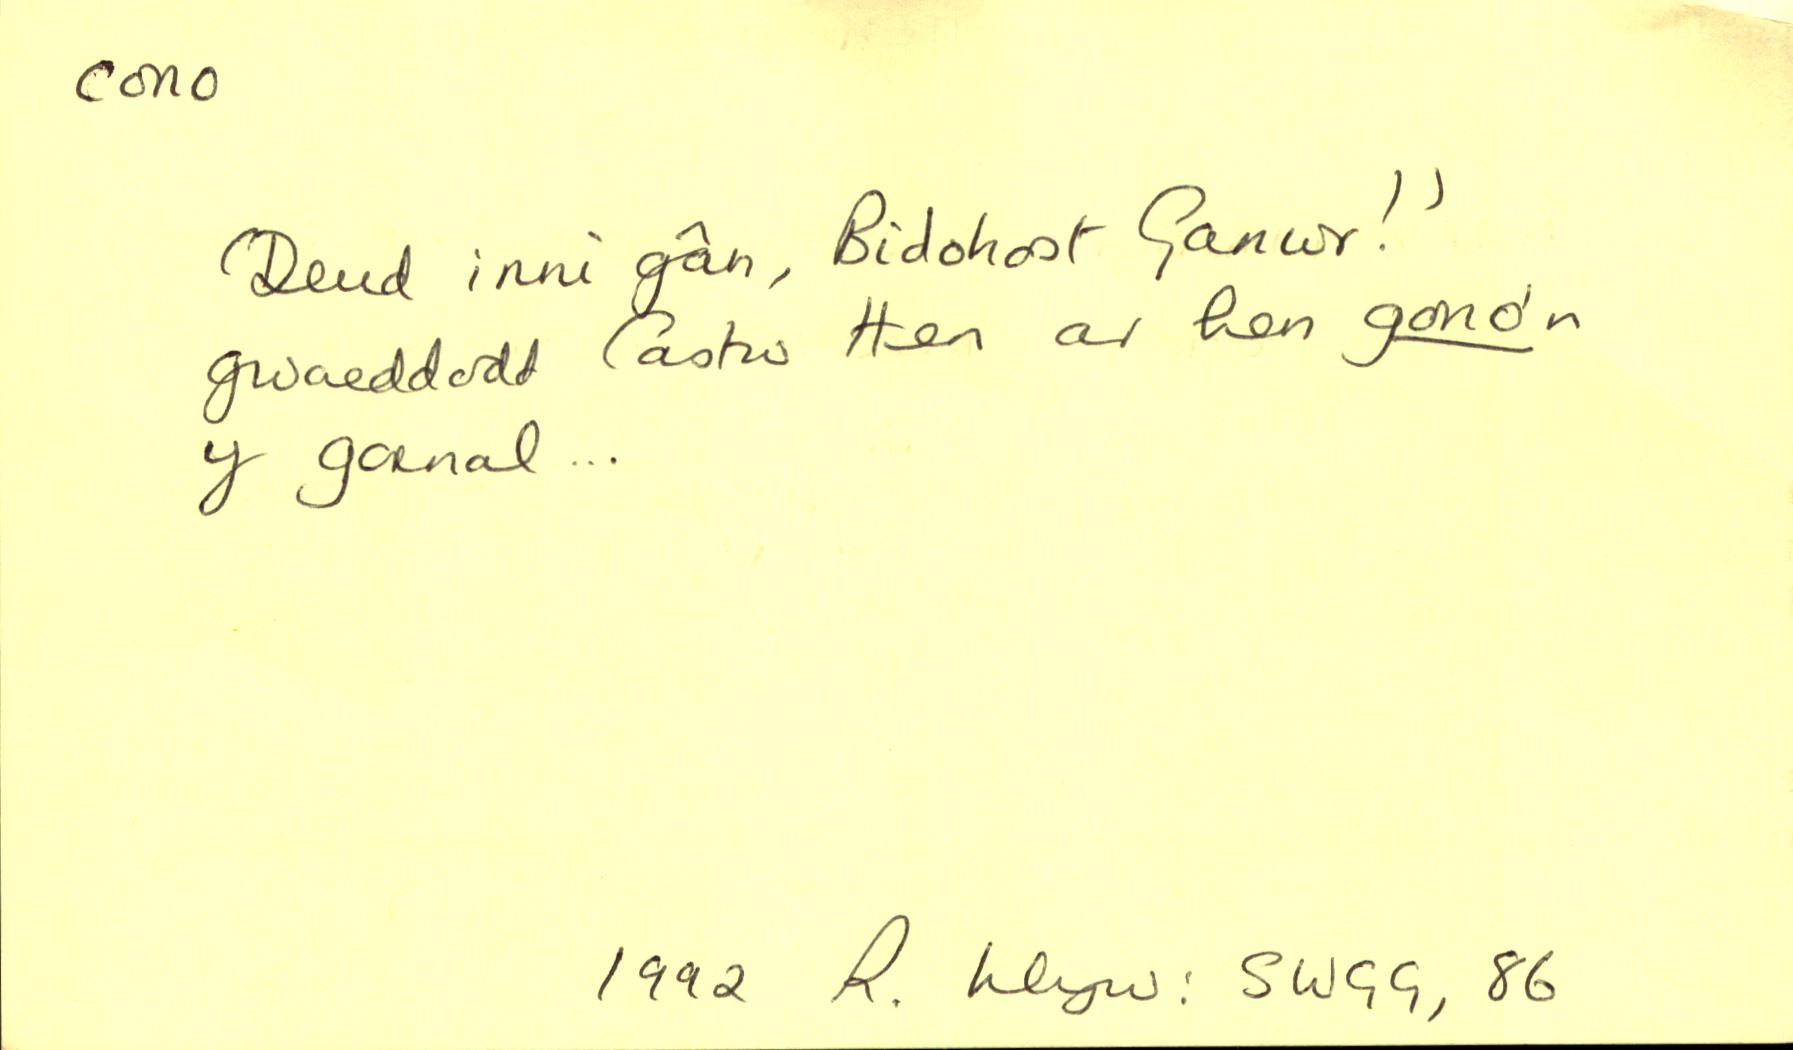 cono
'Deud inni gân, Bidohost Ganwr!'
gwaeddodd Castro Hen ar hen gono'n
y gornal...
1992 R. Llwyw: SWGG, 86